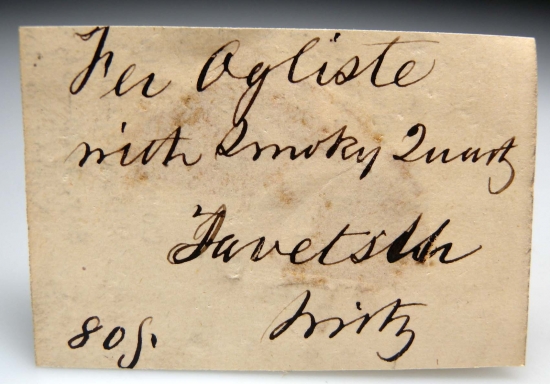 Fer Ogliste
with Smoky Quartz
Tavetsch
Switz
80 g.